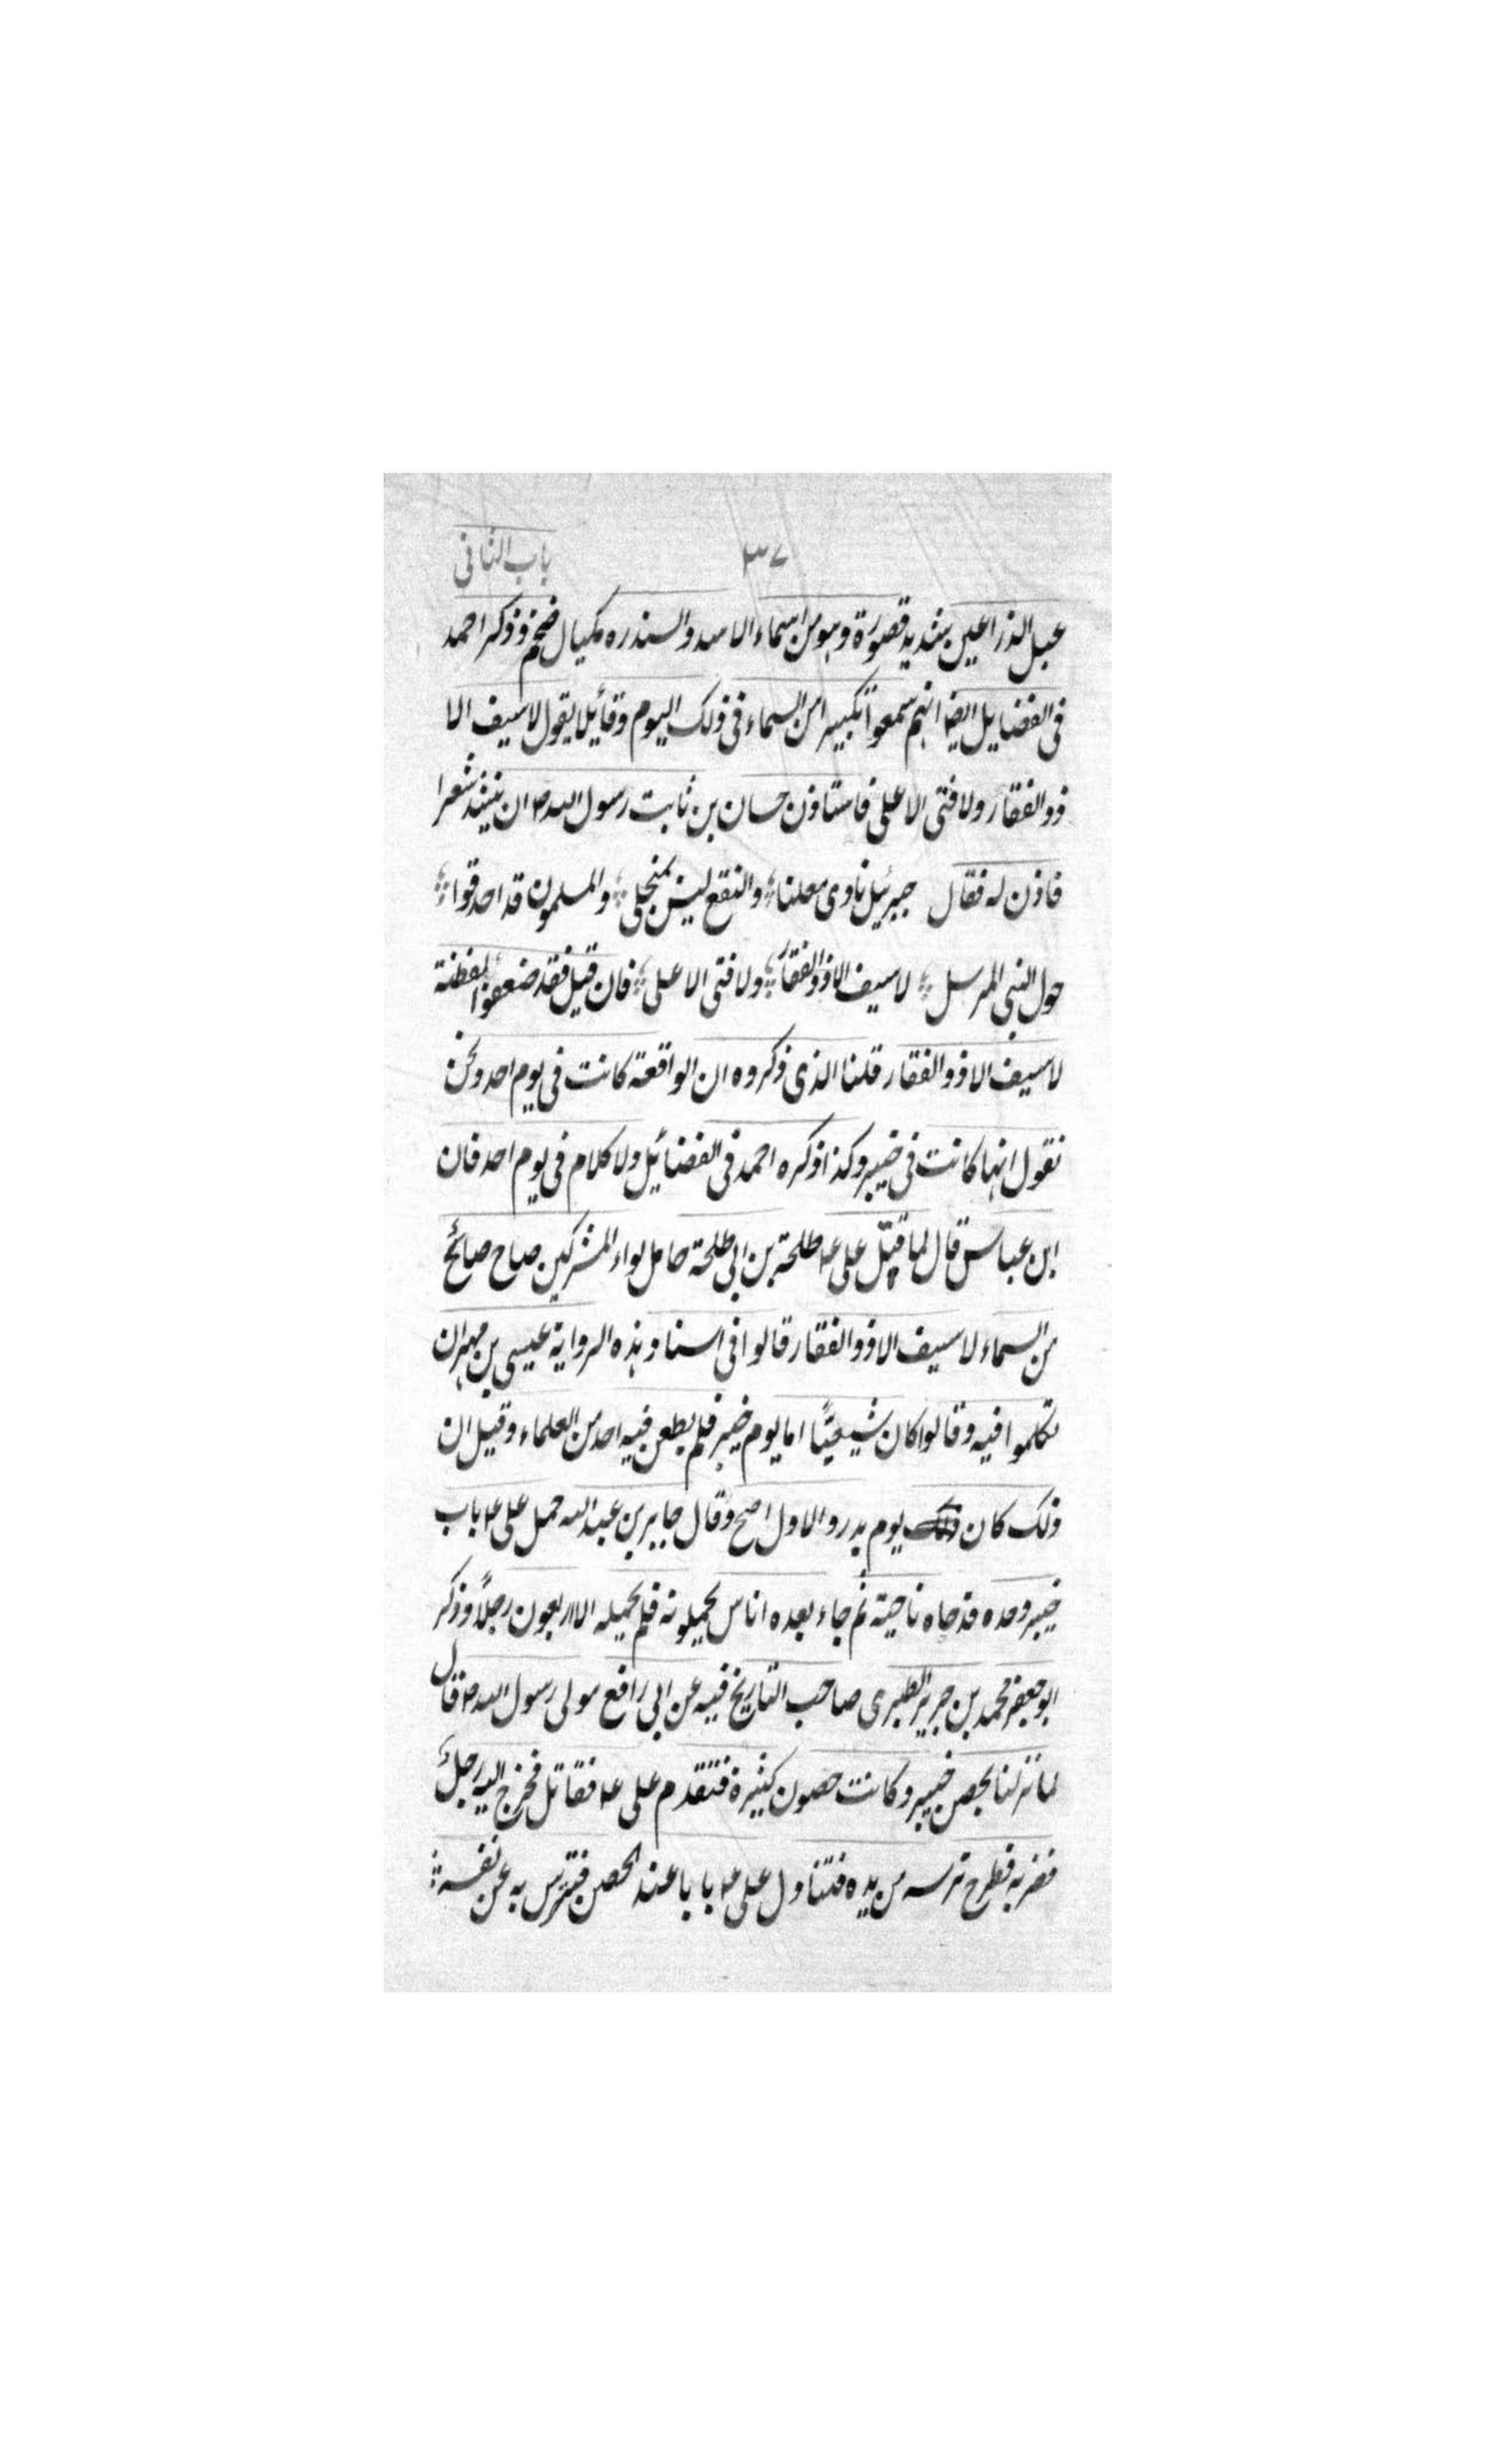 باب الثانى ٣٧
عبل الذراعين شديد قصورة وهو من اسماء الاسد والسندره مكيال ضخم وذكر احمد
فى الفضايل ايضا انهم سمعوا تكبيرا من السماء فى ذلك اليوم وقائيلا يقول لا سيف الا
ذو الفقار ولا فتى الا على فاستاذن حسان بن ثابت رسول الله ص ان ينشد شعرا
فاذن له فقال جبرئيل نادى معلنا والنقع ليس بمنجلى والمسلمون قد احدقوا
حول النبى المرسل لا سيف الا ذو الفقار ولا فتى الا على فان قيل فقد ضعفوا لفظة
لا سيف الا ذو الفقار قلنا الذى ذكروه ان الواقعة كانت فى يوم احد ونحن
نقول انها كانت فى خيبر وكذا ذكره احمد فى الفضائيل ولا كلام فى يوم احد فان
ابن عباس قال لما قتل على ع طلحة بن ابى طلحة حامل لواء المشركين صاح صائح
من السماء لا سيف الا ذو الفقار قالوا فى اسناد هذه الرواية عيسى بن مهران
تكلموا فيه وقالوا كان شيعيًا اما يوم خيبر فلم يطعن فيه احد من العلماء وقيل ان
ذلك كان يوم بدر والاول اصح وقال جابر بن عبد الله حمل على ع باب
خيبر وحده فدحاه ناحية ثم جاء بعده اناس يحملونه فلم يحمله الا اربعون رجلًا وذكر
ابو جعفر محمد بن جرير الطبرى صاحب التاريخ فيه عن ابى رافع مولى رسول الله ص قال
لما نزلنا بحصن خيبر وكانت حصون كثيرة فتقدم على ع فقاتل فخرج اليه رجل
فضربه فطرح ترسه من يده فتناول على ع بابا عند الحصن فتترس به عن نفسه